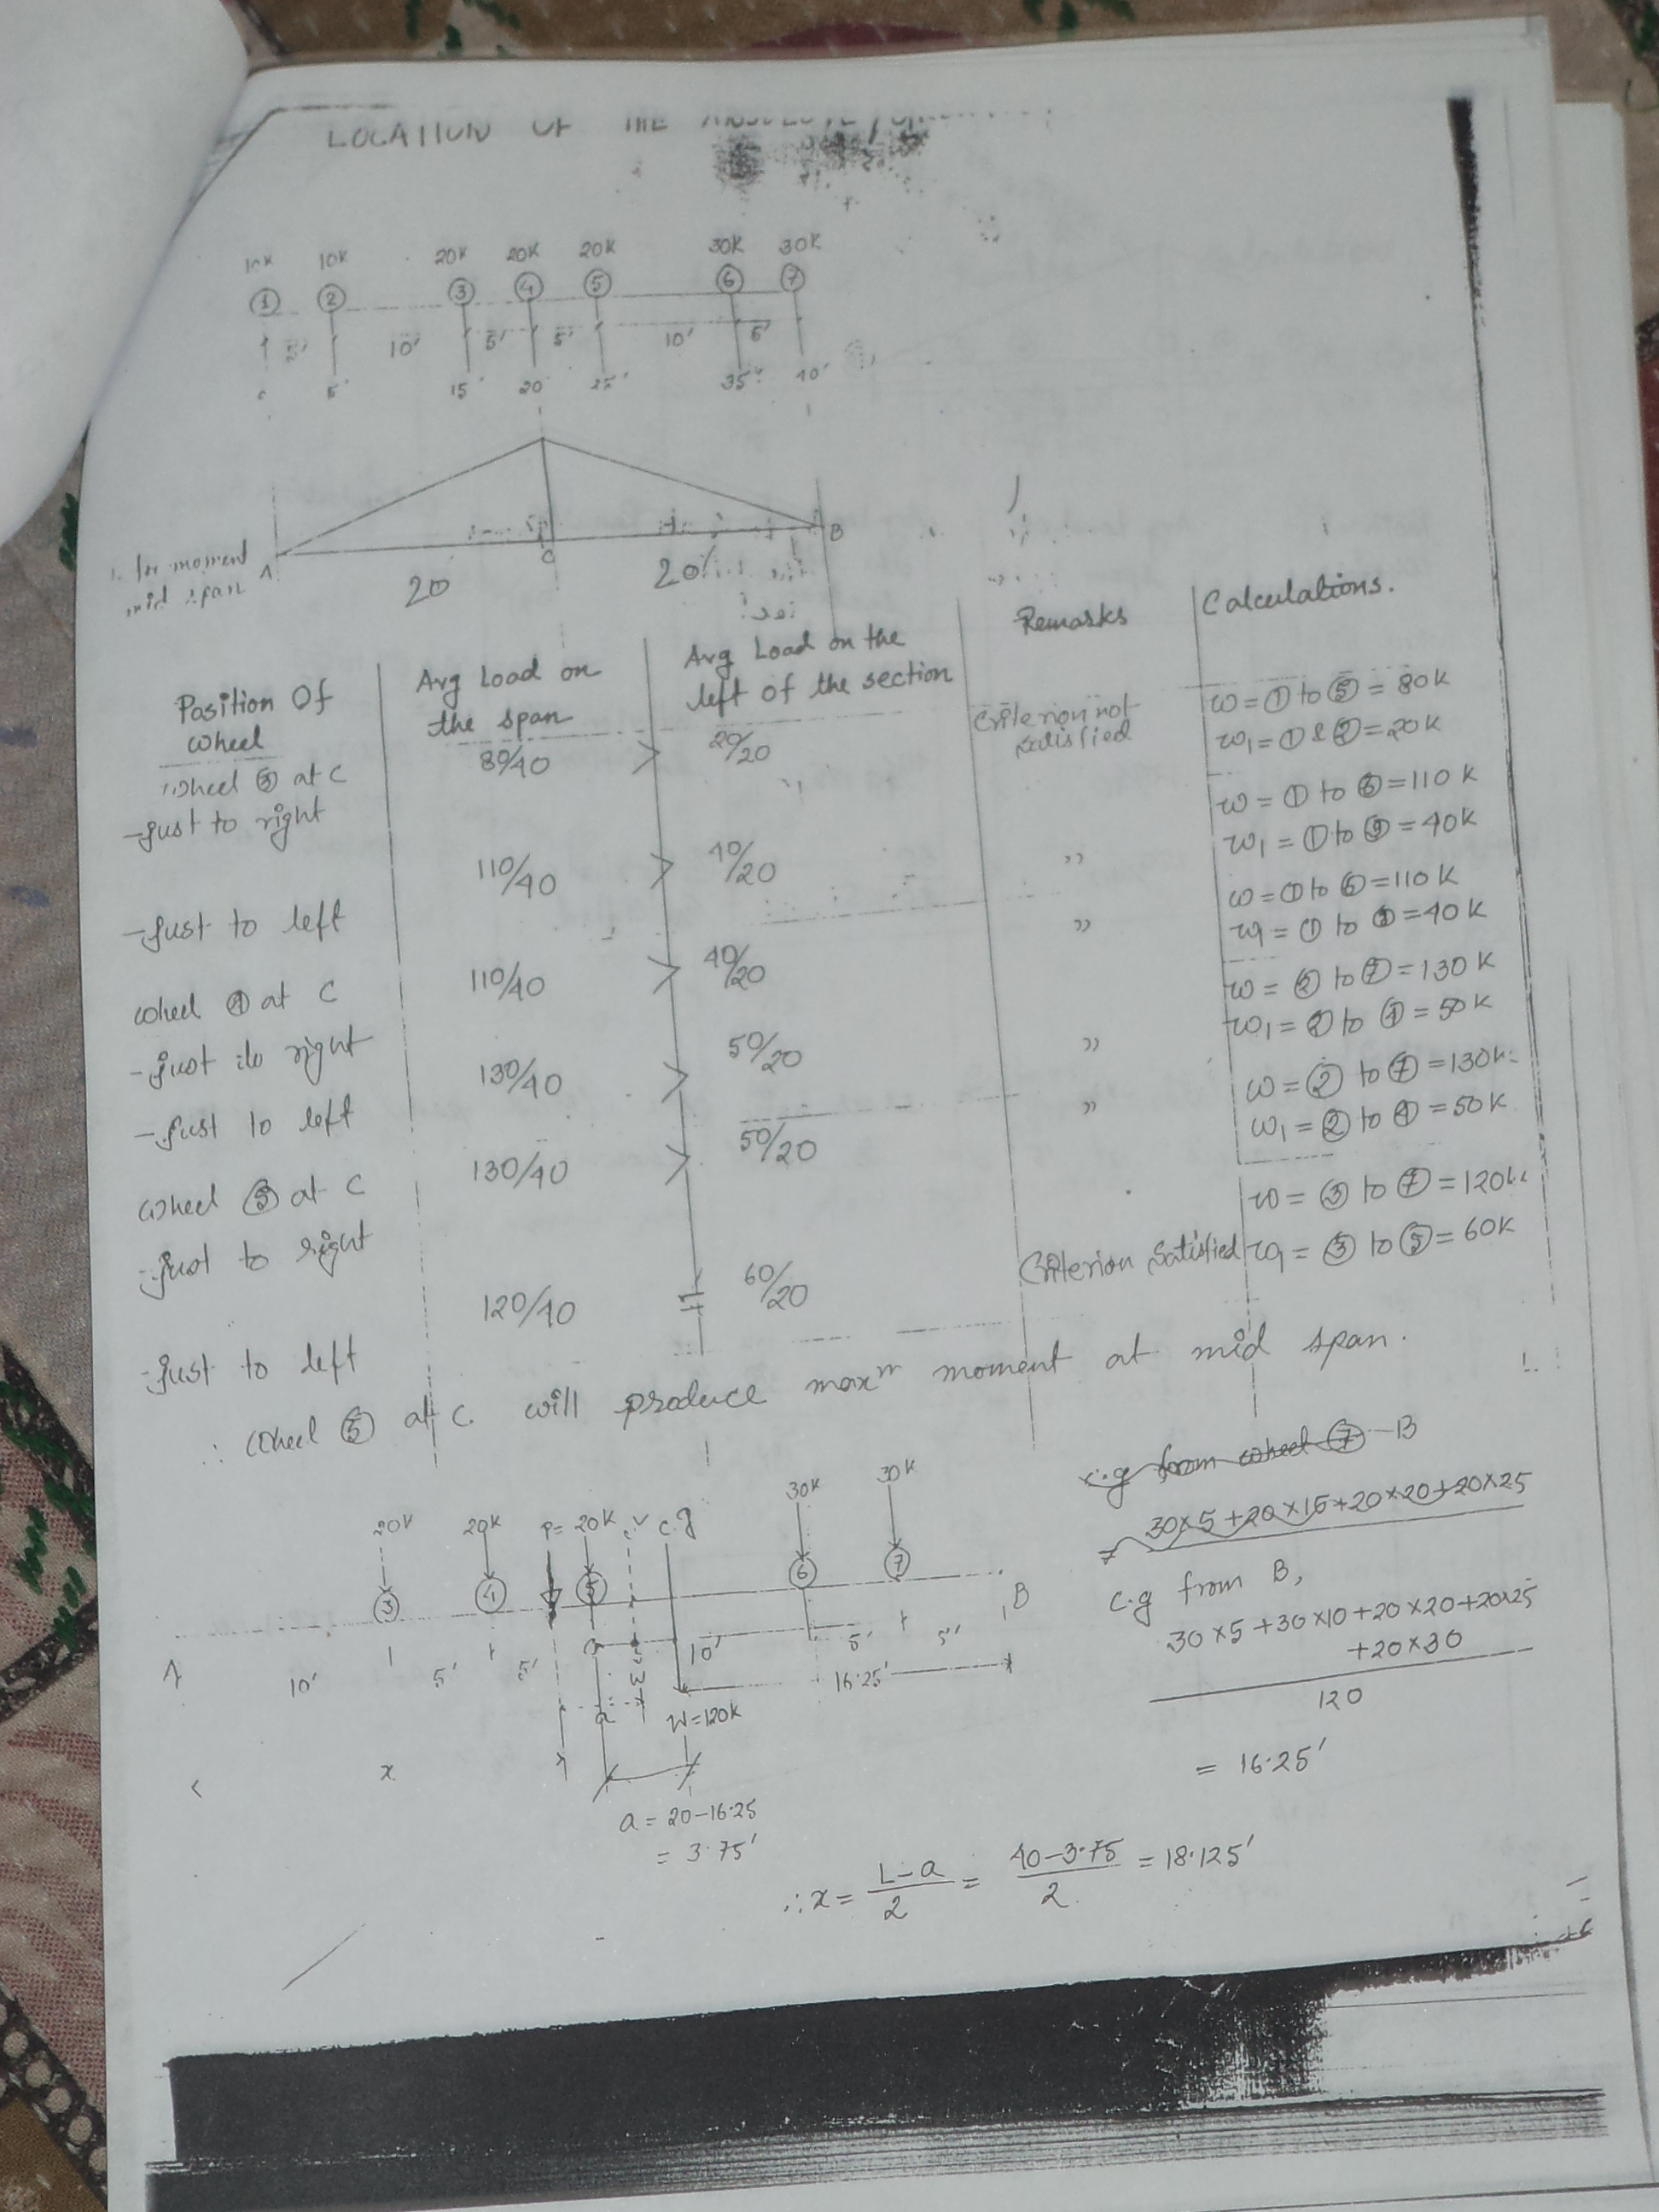 LOCATION OF THE
10K 10K 20K 20K 20K 30K 30K
① ② ③ ④ ⑤ ⑥ ⑦
5' 10' 5' 5' 10' 5'
5' 15' 20 25' 35' 40'
for moment
mid span
A C B
20 20'
Position Of wheel
Avg Load on the span
Avg Load on the left of the section
Remarks
Calculations.
wheel ③ at C
-just to right
80/40 > 20/20
Criterion not satisfied
W = ① to ⑤ = 80K
W₁ = ① & ② = 20K
-just to left
110/40 > 40/20
"
W = ① to ⑥ = 110 K
W₁ = ① to ③ = 40K
wheel ④ at C
-just to right
110/40 > 40/20
"
W = ① to ⑥ = 110 K
W₁ = ① to ③ = 40 K
-just to left
130/40 > 50/20
"
W = ② to ⑦ = 130 K
W₁ = ② to ④ = 50K
wheel ⑤ at C
-just to right
130/40 > 50/20
"
W = ② to ⑦ = 130K
W₁ = ② to ④ = 50K
-just to left
120/40 = 60/20
Criterion Satisfied
W = ③ to ⑦ = 120K
W₁ = ③ to ⑤ = 60K
∴ Wheel ⑤ at C. will produce maxᵐ moment at mid span.
c.g from wheel ⑦ B
= 30×5+20×15+20×20+20×25
20K 20K P= 20K C.g 30K 30K
③ ④ ⑤ ⑥ ⑦
A B
10' 5' 5' 10' 5' 5'
16.25'
a
W=120K
x
a = 20-16.25
= 3.75'
C.g from B,
30×5+30×10+20×20+20×25
+20×30
120
= 16.25'
∴ x = L-a/2 = 40-3.75/2 = 18.125'